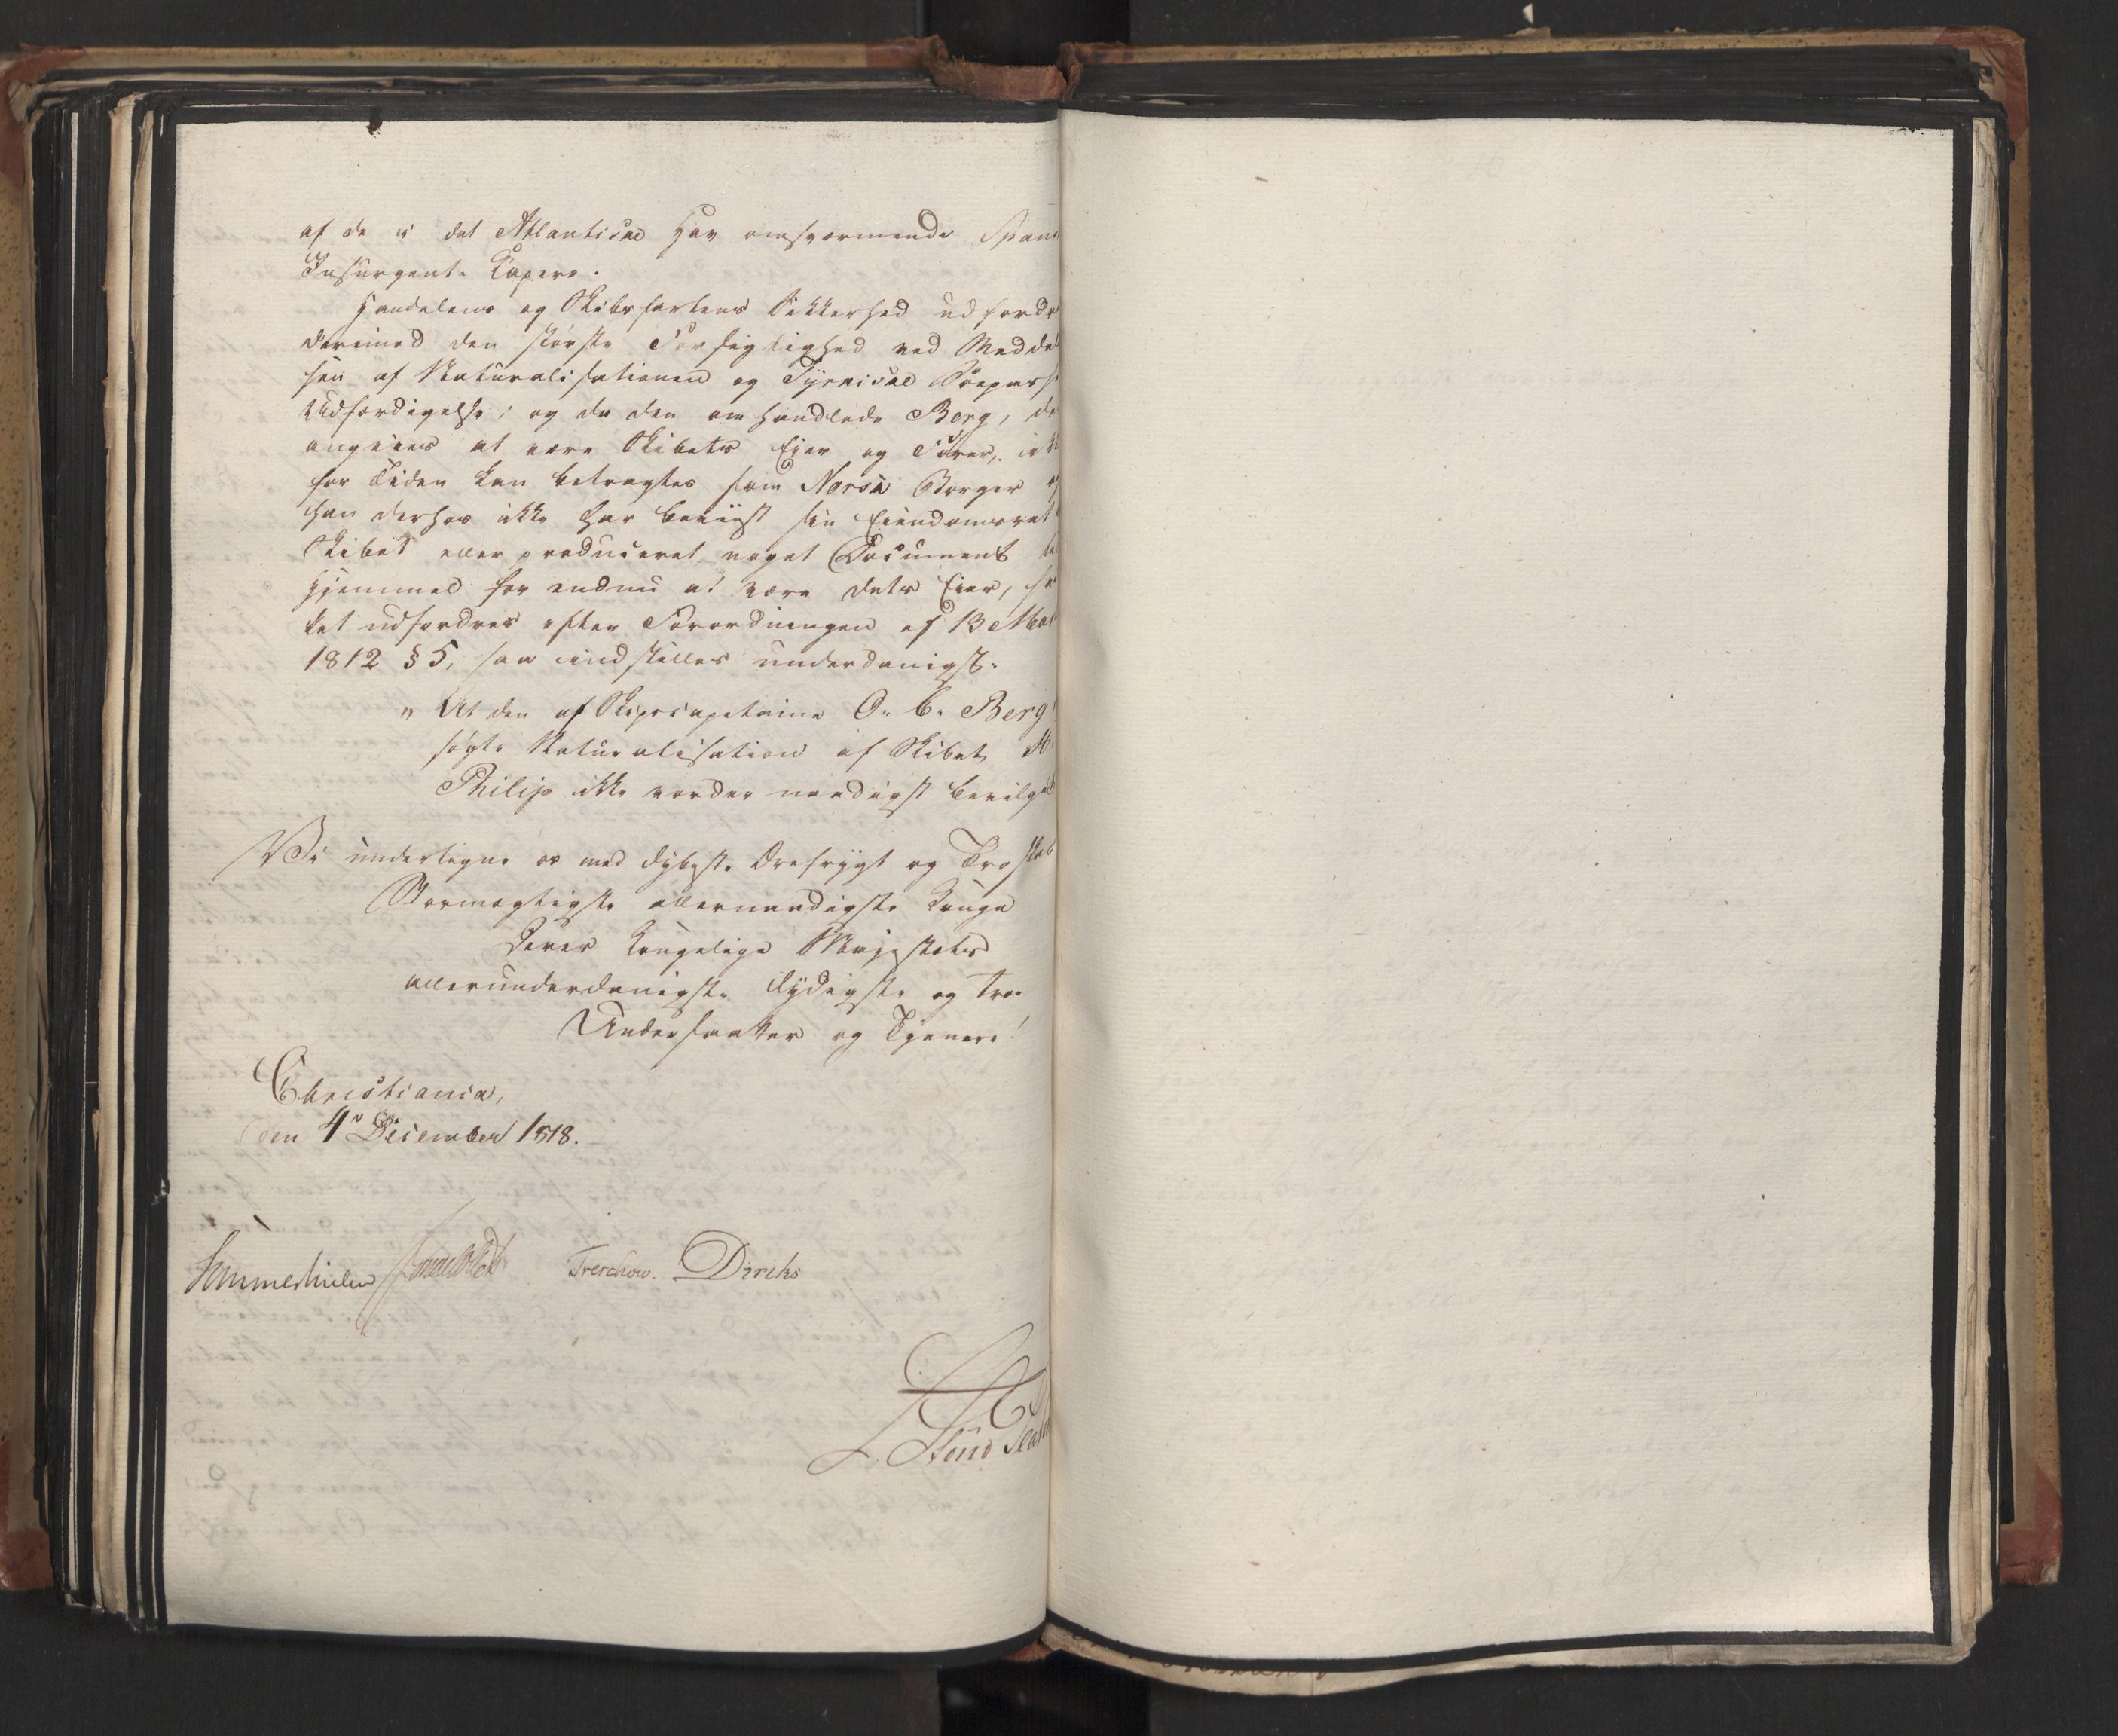 af de i det Atlantiske Hav omsværmende Span
Insurgent-Capere.
Handelens og Skibsfartens Sikkerhed udfordr
derimod den største Forsigtighed ved Meddel
sen af Naturalisationen og Tyrkiske Søepasse
Udfærdigelse; og da den omhandlede Berg, de
angives at være Skibets Eier og Fører, ikke
for Tiden kan betragtes som Norsk Borger og
han derhos ikke har beviist sin Eiendomsret
Skibet eller produceret noget Document
Hjemmel for endnu at være dets Eier,
ket udfordres efter Forordningen af 13 Mar
1812 § 5, saa indstilles underdanigst:
" At den af Skipscapitaine O. C. Berg
søgte Naturalisation af Skibet St.
Philip ikke vorder naadigst bevilget
Vi undertegne os med dybeste Ærefrygt og Troskab
Stormægtigste allernaadigste Konge
Deres Kongelige Majestæts
allerunderdanigste lydigste og troe
Undersaatter og Tjenere!
Christiania,
den 4de December 1818.
Sommerhielm Treschow. Diriks